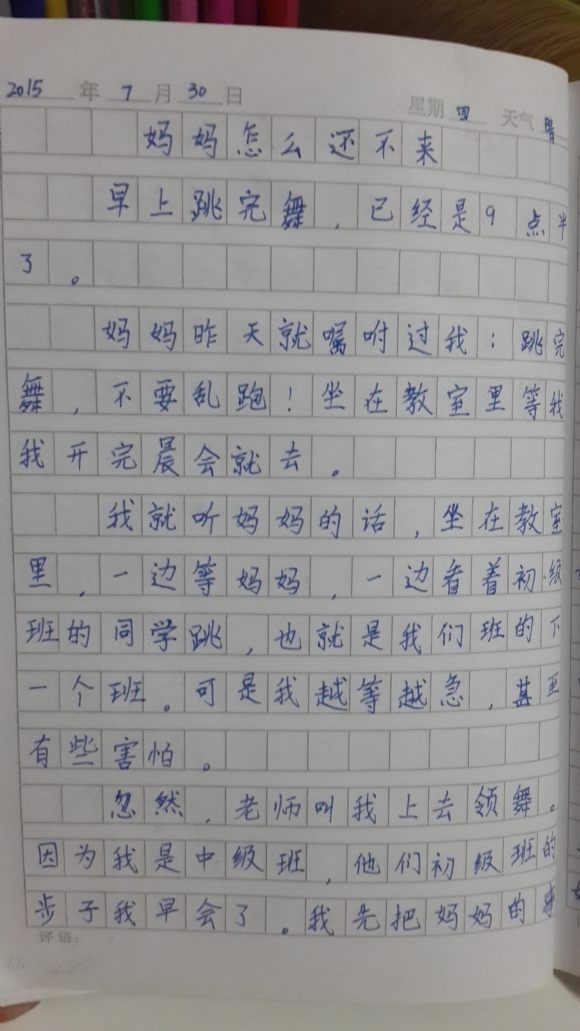 2015 年 7 月 30 日 星期 四 天气 晴
妈妈怎么还不来
早上跳完舞，已经是9点半
了。
妈妈昨天就嘱咐过我：跳完
舞，不要乱跑！坐在教室里等我
我开完晨会就去。
我就听妈妈的话，坐在教室
里，一边等妈妈，一边看着初级
班的同学跳，也就是我们班的下
一个班。可是我越等越急，甚至
有些害怕。
忽然，老师叫我上去领舞。
因为我是中级班，他们初级班的
步子我早会了。我先把妈妈的事
评语：